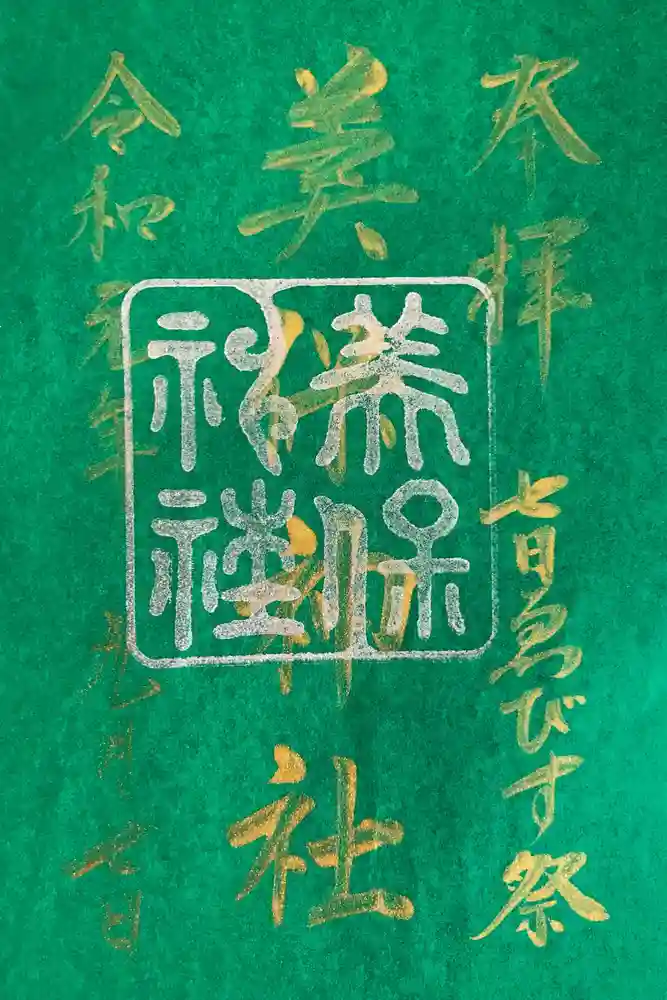 奉拝
七日ゑびす祭
美保神社
美保神社
令和元年
九月七日